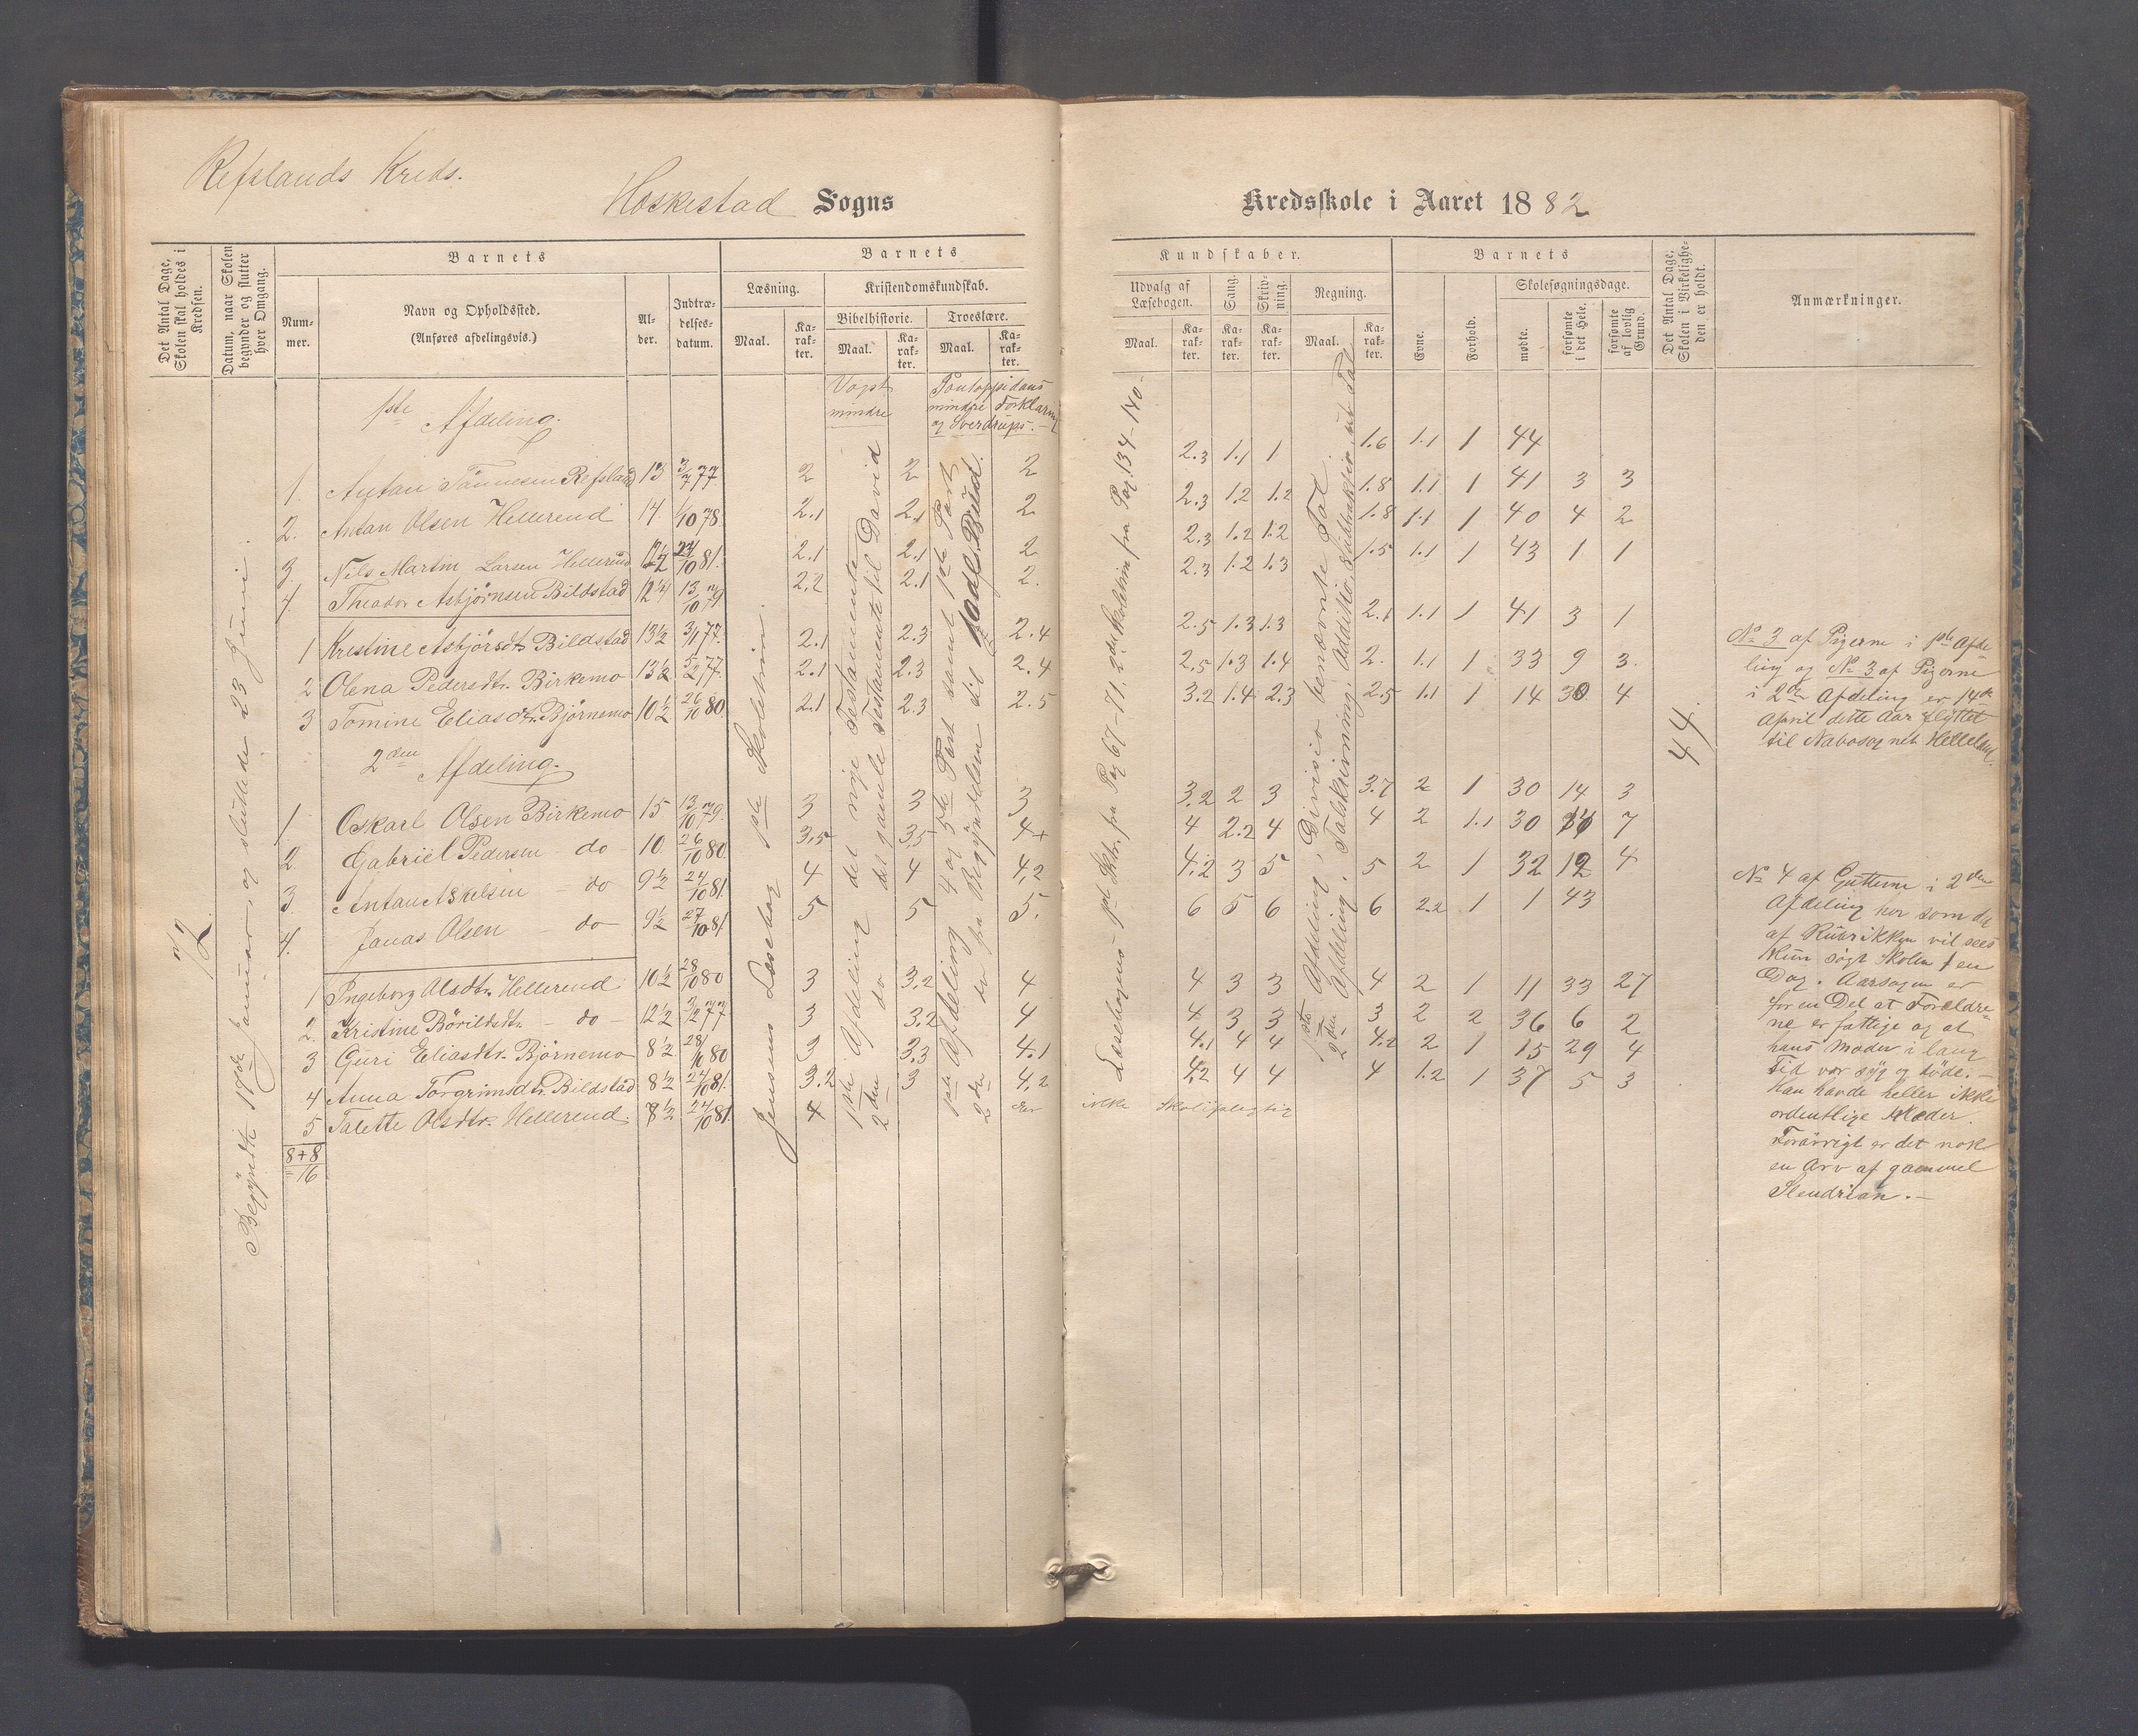 Refslands Kreds.
Heskestad Sogns
Kredsskole i Aaret 1882
Det Antal Dage, Skolen skal holdes i Kredsen.
Datum, naar Skolen begynder og slutter hver Omgang.
Barnets
Num-mer.
Navn og Opholdssted.
(Anføres afdelingsvis.)
Al-der.
Indtræ-delses-datum.
Barnets
Læsning.
Maal.
Ka-rak-ter.
Kristendomskundskab.
Bibelhistorie.
Maal.
Ka-rak-ter.
Troeslære.
Maal.
Ka-rak-ter.
Kundskaber.
Udvalg af Læsebogen.
Maal.
Ka-rak-ter.
Sang.
Ka-rak-ter.
Skriv-ning.
Ka-rak-ter.
Regning.
Maal.
Ka-rak-ter.
Barnets
Evne.
Forhold.
Skolesøgningsdage.
mødte.
forsømte i det Hele.
forsømte af lovlig Grund.
Det Antal Dage, Skolen i Virkelighe-den er holdt.
Anmærkninger.
72.
Begyndte 19de Januar, og sluttede 23 Juni.
Jensens Læsebog 1ste Skoletrin.
Vogts mindre
1ste Afdeling det nye Testamente
2den do det gamle Testamente til David
Pontoppidans mindre Forklaring og Sverdrups.
1ste Afdeling 4 og 5te Part samt 1ste Part
2den do fra Begyndelsen til
Læsebogens 1ste Sktr. fra Pag 67-71. 2det Skoletrin fra Pag. 134-140.
1ste Afdeling, Divisio benævnte Tal.
2den Afdeling, Talskrivning, Additio, Subtraktio
44.
1ste Afdeling.
1. Antan Tønnesen Refsland 13 3/7 77. 2 2 2 2.3 1.1 1 1.6 1.1 1 44
2. Antan Olsen Hellerend 14. 1/10 78. 2.1 2.1 2 2.3 1.2 1.2 1.8 1.1 1 41 3 3
3. Nils Martin Larsen Hellerend 24/10 81. 2.1 2.1 2 2.3 1.2 1.2 1.8 1.1 1 40 4 2
4. Theodor Asbjørnsen Bildstad 12 1/4 13/10 79 2.2 2.1 2. 2.3 1.2 1.3 1.5 1.1 1 43 1 1
1 Kristine Asbjørsdt. Bildstad 13 1/2 3/1 77. 2.1 2.3 2.4 2.5 1.3 1.3 2.1 1.1 1 41 3 1
2 Olena Pedersdtr. Birkemo 13 1/2 5/2 77. 2.1 2.3 2.4 2.5 1.3 1.4 2. 1.1 1 33 9 3
3 Tomine Eliasdtr. Bjørnemo 10 1/2 26/10 80. 2.1 2.3 2.5 3.2 1.4 2.3 2.5 1.1 1 14 30 4
2den Afdeling.
1 Oskarl Olsen Birkemo 15 13/10 79. 3 3 3 3.2 2 3 3.7 2 1 30 14 3
2. Gabriel Pedersen do 10 26/10 80. 3.5 3.5 4+ 4 2.2 4 4 2 1.1 30 14 7
3. Antan Askelsen do 9 1/2 24/10 81. 4 4 4.2 4.2 3 5 5 2 1 32 12 4
4. Janas Olsen do 9 1/2 27/10 81. 5 5 5. 6 5 6 6 2.2 1 1 43
1 Ingeborg Olsdtr. Hellerend 10 1/2 28/10 80 3 3.2 4 4 3 3 4 2 1 11 33 27
2. Kristine Børildsdtr. do 12 1/2 3/12 77 3 3.2 4 4 3 3 3 2 2 36 6 2
3 Guri Eliasdtr. Bjørnemo 8 1/2 28/10 80 3 3.3 4.1 4.1 4 4 4.2 2 1 15 29 4
4 Anna Torgrimsdtr. Bildstad 8 1/2 24/10 81. 3.2 3 4.2 4.2 4 4 4 1.2 1 37 5 3
5 Talette Olsdtr. Hellerend. 8 1/2 24/10 81. 4 er ikke skolepligtig
8+8
=16
No 3 af Pigerne i 1ste Afde-
ling og No 3 af Pigerne
i 2den Afdeling er 14de
April dette Aar flyttet
til Nabosognet Helleland.
No 4 af Gutterne i 2den
Afdeling har som da
af Rubrikken vil sees
kun søgt Skolen 1 en
Dag. Aarsagen er
for en Del at Foreldre-
ne er fattige og at
hans Moder i lang
Tid var syg og døde. -
Han havde heller ikke
ordentlige Klæder.
Forøvrigt er det nok
en Arv af gammel
Slendrian. -